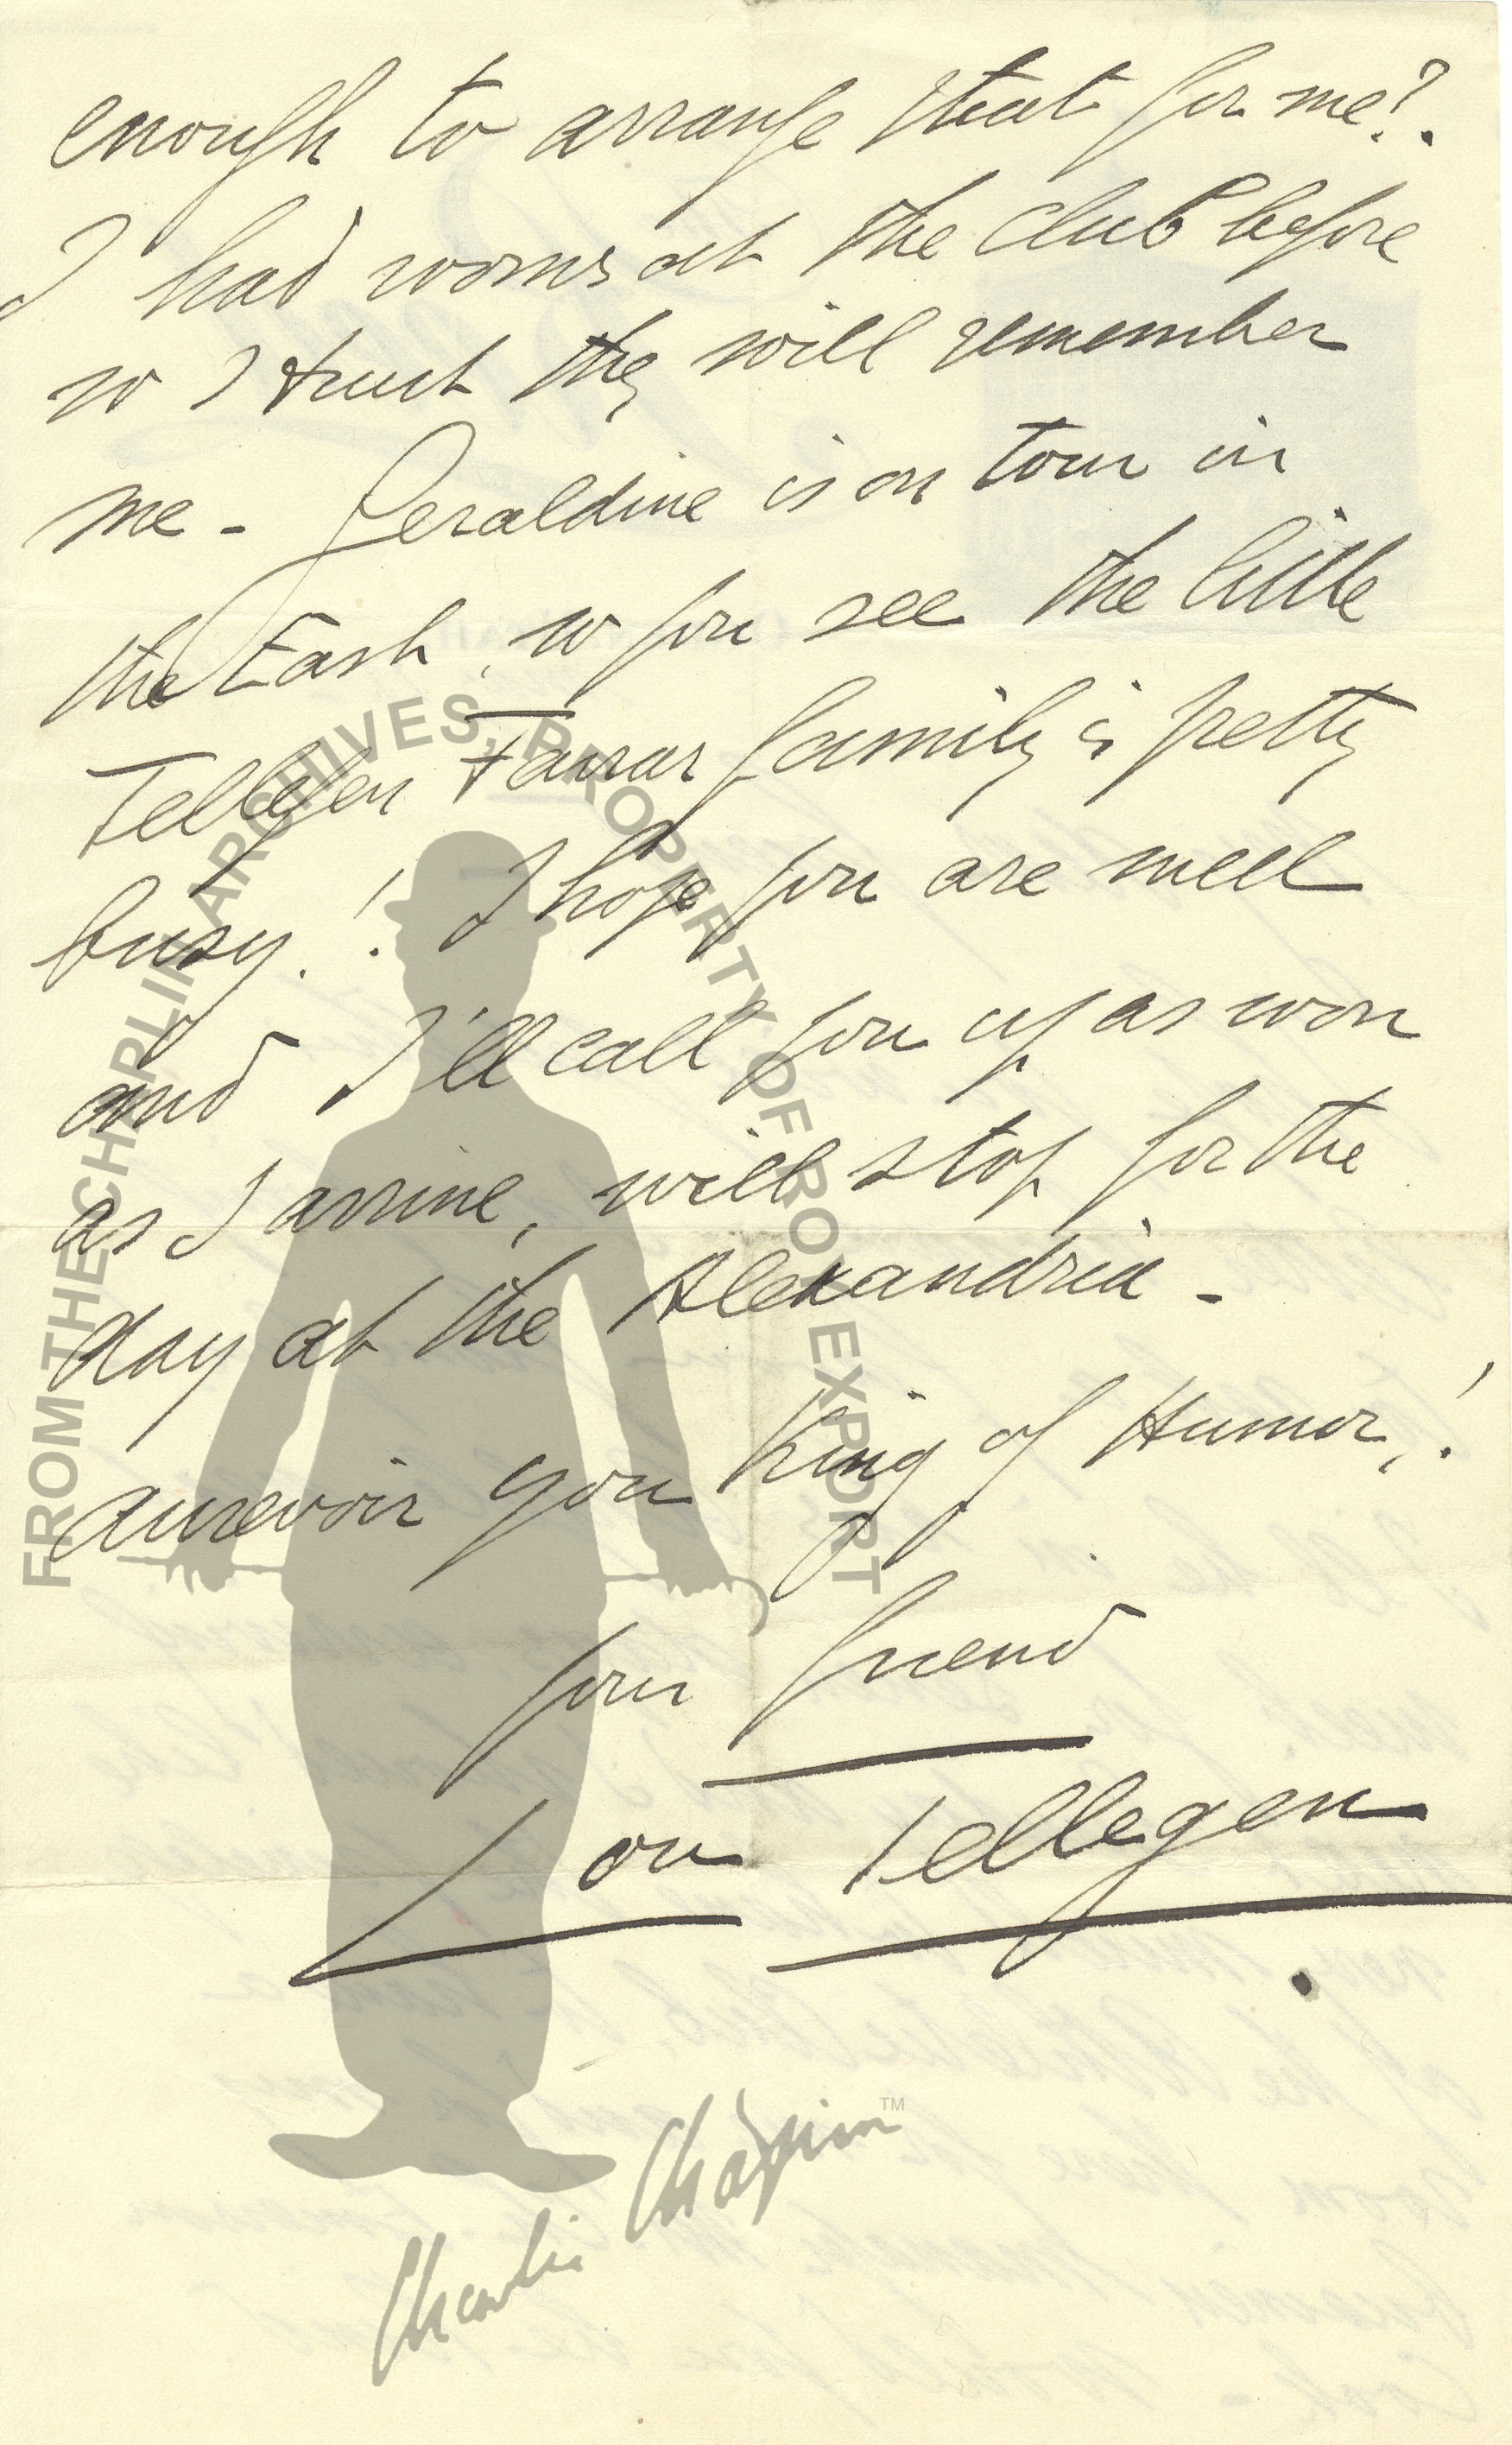 enough to arrange that for me?
I had rooms at the club before
so I trust they will remember
me - Geraldine is on tour in
the East, so you see the little
Tellegen Farrar family is pretty
busy.! I hope you are well
and I'll call you up as soon
as I arrive, will stop for the
day at the Alexandria -
aurevoir you King of Humor,!
your friend
Lou Tellegen
FROM THE CHAPLIN ARCHIVES, PROPERTY OF ROY EXPORT
Charlie Chaplin TM